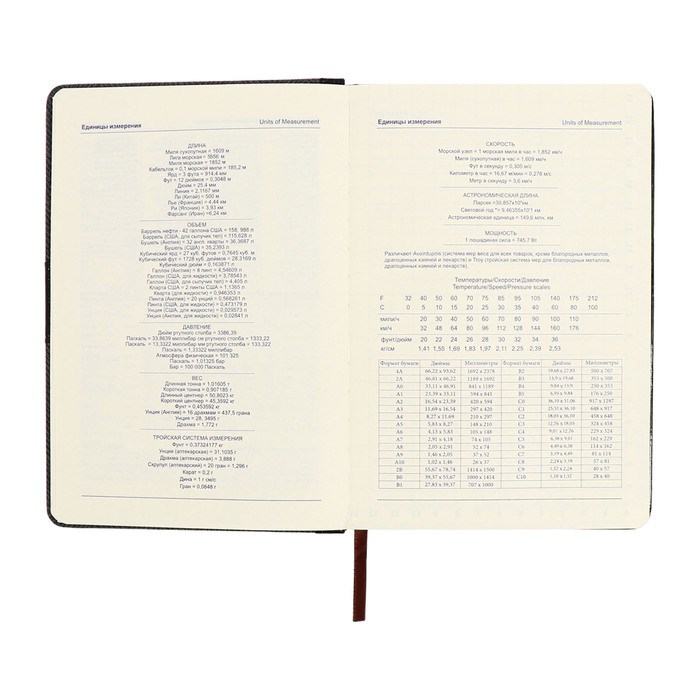 Единицы измерения Units of Measurement
ДЛИНА
Миля сухопутная = 1609 м
Лига морская = 5556 м
Миля морская = 1852 м
Кабельтов = 0,1 морской мили = 185,2 м
Ярд = 3 фута = 914,4 мм
Фут = 12 дюймов = 0,3048 м
Дюйм = 25,4 мм
Линия = 2,1167 мм
Ли (Китай) = 500 м
Лье (Франция) = 4,44 км
Ри (Япония) = 3,93 км
Фарсанг (Иран) =6,24 км
ОБЪЕМ
Баррель нефти - 42 галлона США = 158, 988 л
Баррель (США, для сыпучих тел) = 115,628 л
Бушель (Англия) = 32 англ. кварты = 36,3687 л
Бушель (США) = 35,2393 л
Кубический ярд = 27 куб. футов = 0,7645 м.
Кубический фут = 1728 куб. дюймов = 28,3169 л
Кубический дюйм = 0,163871 л
Галлон (Англия) = 8 пинт = 4,54609 л
Галлон (США, для жидкости) = 3,78543 л
Галлон (США, для сыпучих тел) = 4,405 л
Кварта США = 2 пинты США = 1,1365 л
Кварта (для жидкости) = 0,946353 л
Пинта (Англия) = 20 унций = 0,568261 л
Пинта (США, для жидкости) = 0,473179 л
Унция (США, для жидкости) = 0,029573 л
Унция (Англия, для жидкости) = 0,02841 л
ДАВЛЕНИЕ
Дюйм ртутного столба = 3386,39
Паскаль = 33,8639 миллибар дюймов ртутного столба = 1333,22
Паскаль = 13,3322 миллибар мм ртутного столба = 133,322
Паскаль = 1,33322 миллибар
Атмосфера физическая = 101 325
Паскаль = 1,01325 бар
Бар = 100 000 Паскаль
ВЕС
Длинная тонна = 1,01605 т
Короткая тонна = 0,907185 т
Длинный центнер = 50,8023 кг
Короткий центнер = 45,3592 кг
Фунт = 0,453592 кг
Унция (Англия) = 16 драхмам = 437,5 грана
Унция = 28, 3495 г
Драхма = 1,772 г
ТРОЙСКАЯ СИСТЕМА ИЗМЕРЕНИЯ
Фунт = 0,37324177 кг
Унция (аптекарская) = 31,1035 г
Драхма (аптекарская) = 3,888 г
Скрупул (аптекарская) = 20 гран = 1,296 г
Карат = 0,2 г
Дина = 1 г см/с
Гран = 0,0648 г
Единицы измерения Units of Measurement
СКОРОСТЬ
Морской узел = 1 морская миля в час = 1,852 км/ч
Миля (сухопутная) в час = 1,609 км/ч
Фут в секунду = 0,305 м/с
Километр в час = 16,67 м/мин = 0,278 м/с
Метр в секунду = 3,6 км/ч
АСТРОНОМИЧЕСКАЯ ДЛИНА
Парсек =30,857х10¹²км
Световой год = 9,46355х10¹² км
Астрономическая единица = 149,6 млн. км
МОЩНОСТЬ
1 лошадиная сила = 745,7 Вт
Различают Avoirdupois (система мер веса для всех товаров, кроме благородных металлов,
драгоценных камней и лекарств) и Troy (тройская система мер для благородных металлов,
драгоценных камней и лекарств).
Температуры/Скорости/Давление
Temperature/Speed/Pressure scales
F 32 40 50 60 70 75 85 95 105 140 175 212
C 0 5 10 15 20 25 30 35 40 60 80 100
мили/ч 20 30 40 50 60 70 80 90 100 110
км/ч 32 48 64 80 96 112 128 144 160 176
фунт/дюйм 20 22 24 26 28 30 32 34 36
кг/см 1,41 1,55 1,69 1,83 1,97 2,11 2,25 2,39 2,53
Формат бумаги Дюймы Миллиметры Формат бумаги Дюймы Миллиметры
4A 66,22 x 93,62 1692 x 2378 B2 19,68 x 27,83 500 x 707
2A 46,81 x 66,22 1189 x 1692 B3 13,9 x 19,68 353 x 500
A0 33,11 x 46,81 841 x 1189 B4 9,84 x 13,9 250 x 353
A1 23,39 x 33,11 594 x 841 B5 6,93 x 9,84 176 x 250
A2 16,54 x 23,39 420 x 594 C0 36,10 x 51,06 917 x 1297
A3 11,69 x 16,54 297 x 420 C1 25,51 x 36,10 648 x 917
A4 8,27 x 11,69 210 x 297 C2 18,03 x 36,10 458 x 648
A5 5,83 x 8,27 148 x 210 C3 12,76 x 18,03 324 x 458
A6 4,13 x 5,83 105 x 148 C4 9,01 x 12,76 229 x 324
A7 2,91 x 4,18 74 x 105 C5 6,38 x 9,01 162 x 229
A8 2,05 x 2,91 52 x 74 C6 4,49 x 6,38 114 x 162
A9 1,46 x 2,05 37 x 52 C7 3,19 x 4,49 81 x 114
A10 1,02 x 1,46 26 x 37 C8 2,24 x 3,19 57 x 81
2B 55,67 x 78,74 1414 x 1500 C9 1,57 x 2,24 40 x 57
B0 39,37 x 55,67 1000 x 1414 C10 1,10 x 1,57 28 x 40
B1 27,83 x 39,37 707 x 1000